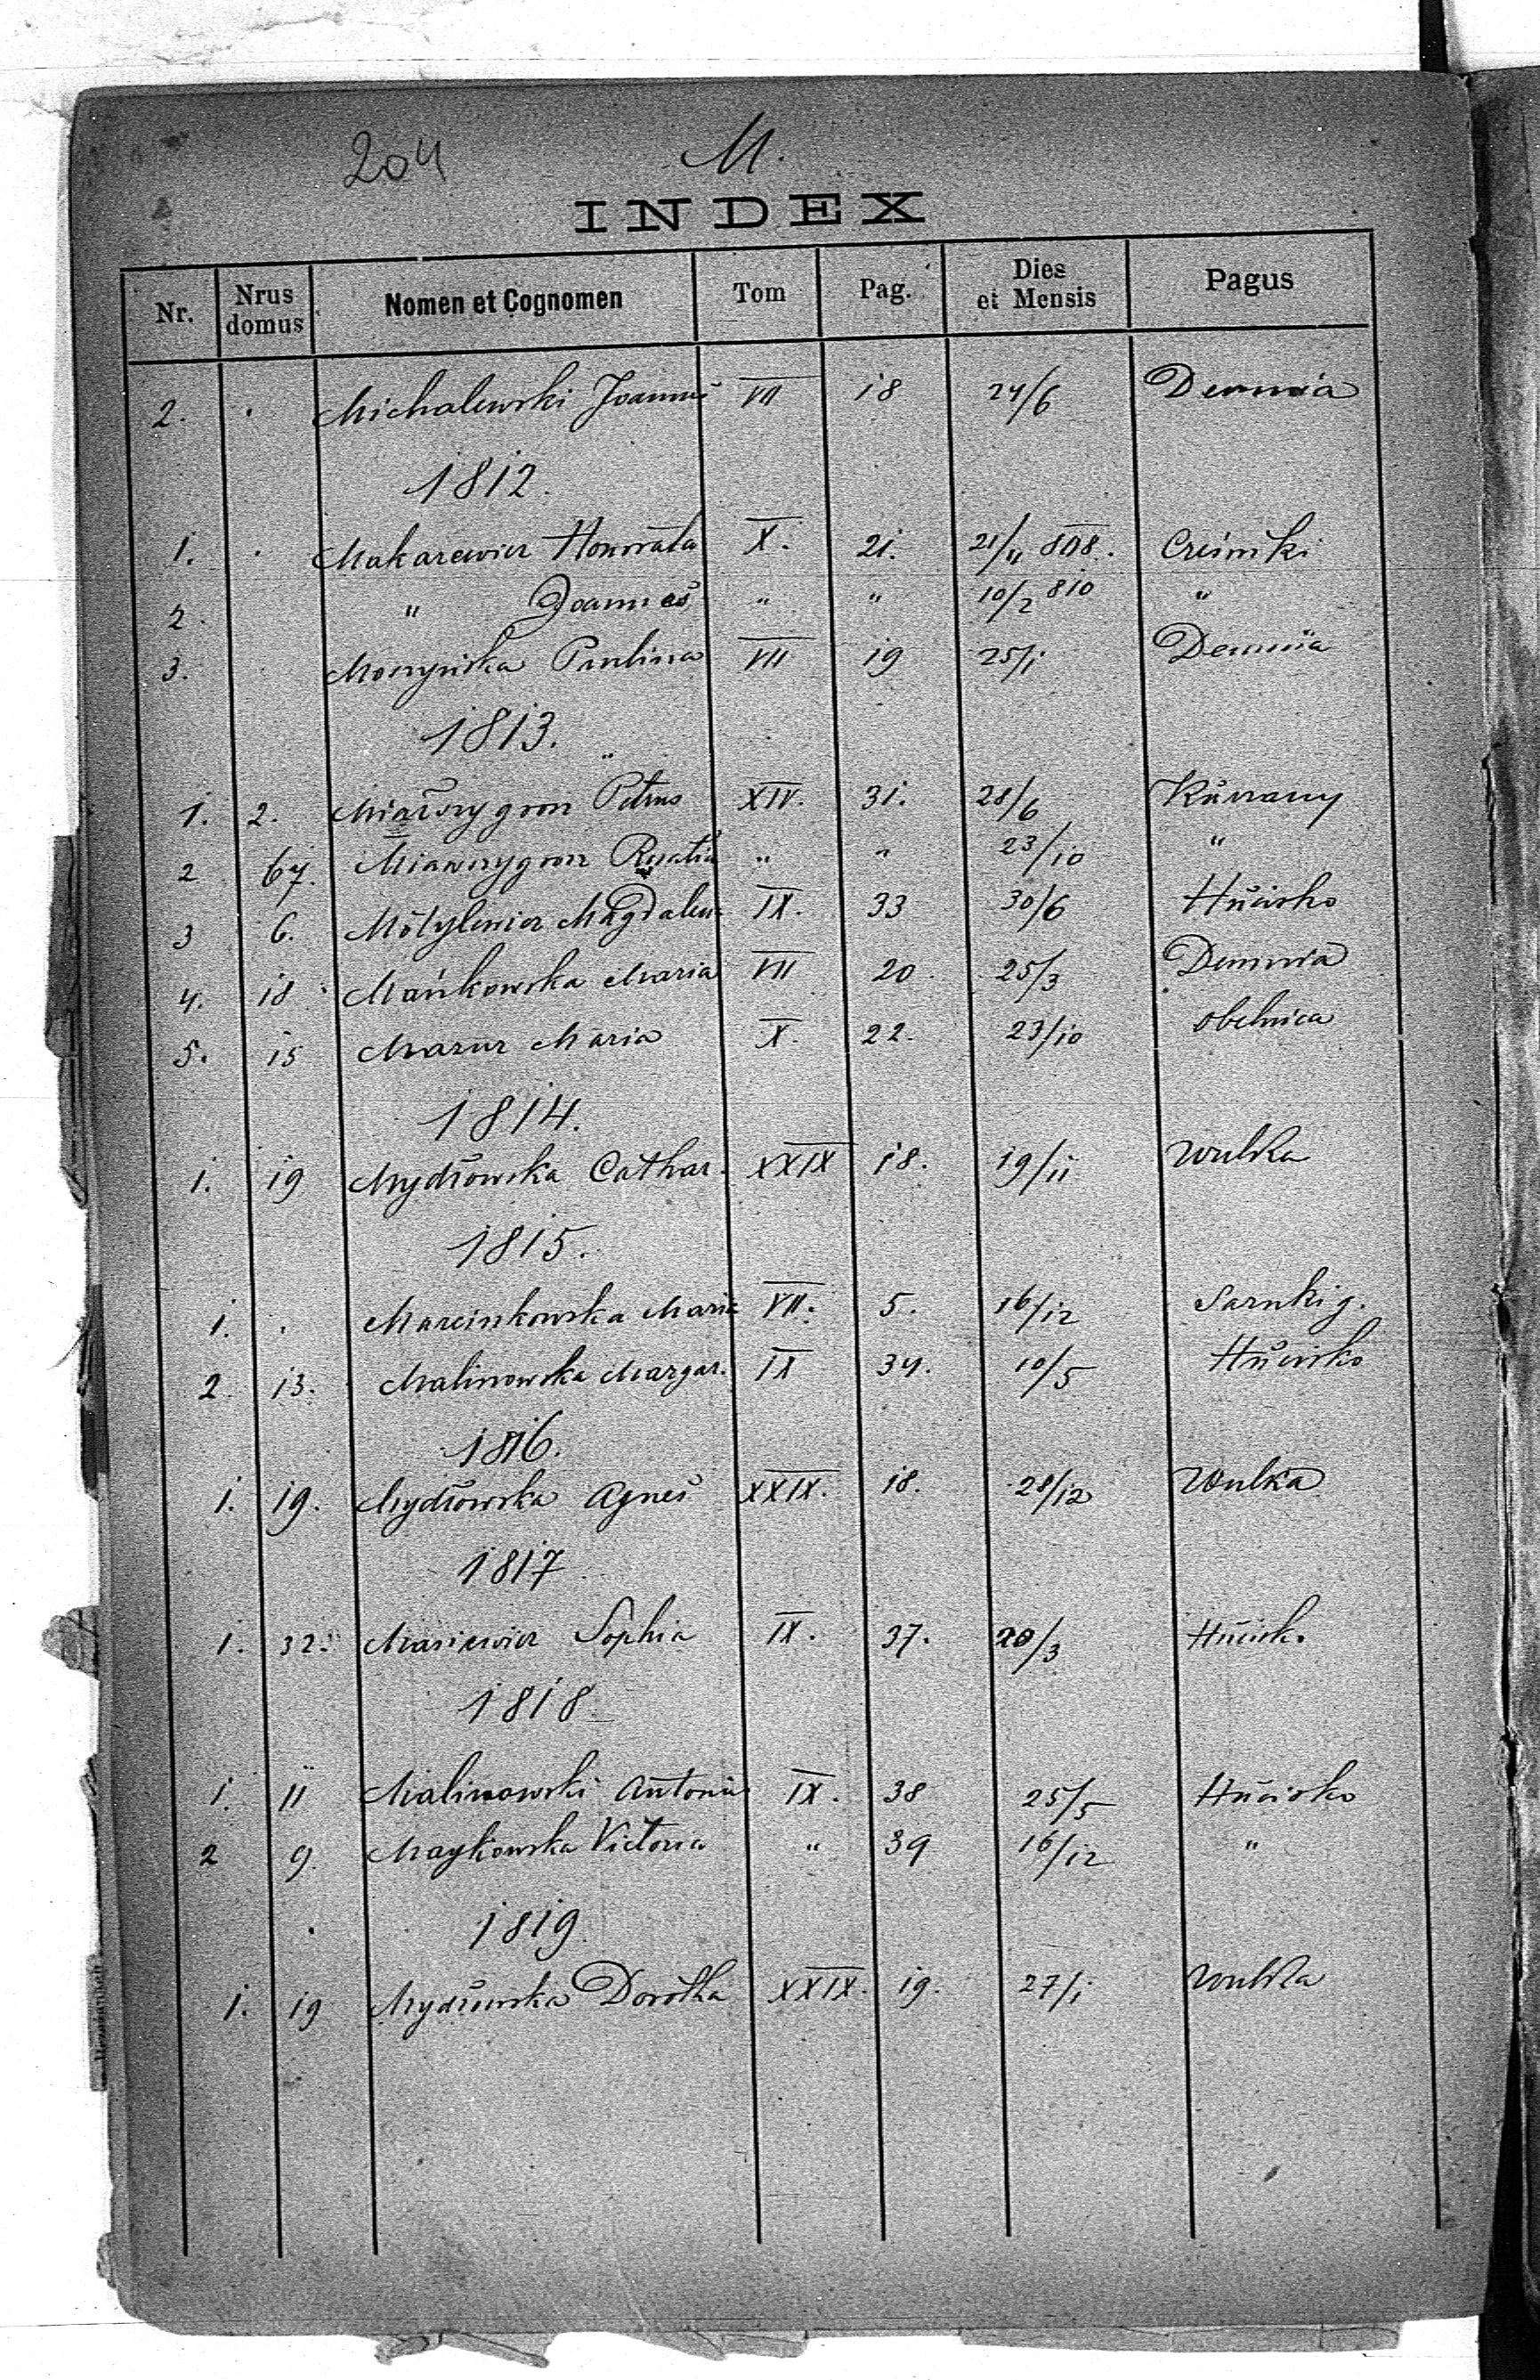 204 M.
INDEX
Nr. Nrus domus Nomen et Cognomen Tom Pag. Dies et Mensis Pagus
2. Michalewski Joannes VII 18 24/6 Demnia
1812.
1. Makarewicz Honorata X. 21. 21/11 808. Czeiniki
2. " Joannes " " 10/2 810 "
3. Moszyńska Paulina VII 19 25/1 Demnia
1813.
1. 2. Petrus XIV. 31. 28/6 Kurzany
2 67. " " 23/10 "
3 6. Motylewicz Magdalena IX. 33 30/6 Hucisko
4. 18 Mańkowska Maria VII 20 25/3 Demnia
5. 15 Mazur Maria X. 22. 23/10 Obelnica
1814.
1. 19 Mydłowska Cathar. XXIX 18. 19/11 Wulka
1815.
1. Marcinkowska Maria VII. 5. 16/12 Sarnki g.
2. 13. Malinowska Margar. IX 34. 10/5 Hucisko
1816.
1. 19. Mydłowska Agnes XXIX. 18. 28/12 Wulka
1817
1. 32. Masiewicz Sophia IX. 37. 20/3 Hucisko
1818
1. 11 Malinowski Antonius IX. 38 25/5 Hucisko
2 9. Maykowska Victoria " 39 16/12 "
1819.
1. 19 Mydłowska Dorotha XXIX. 19. 27/1 Wulka